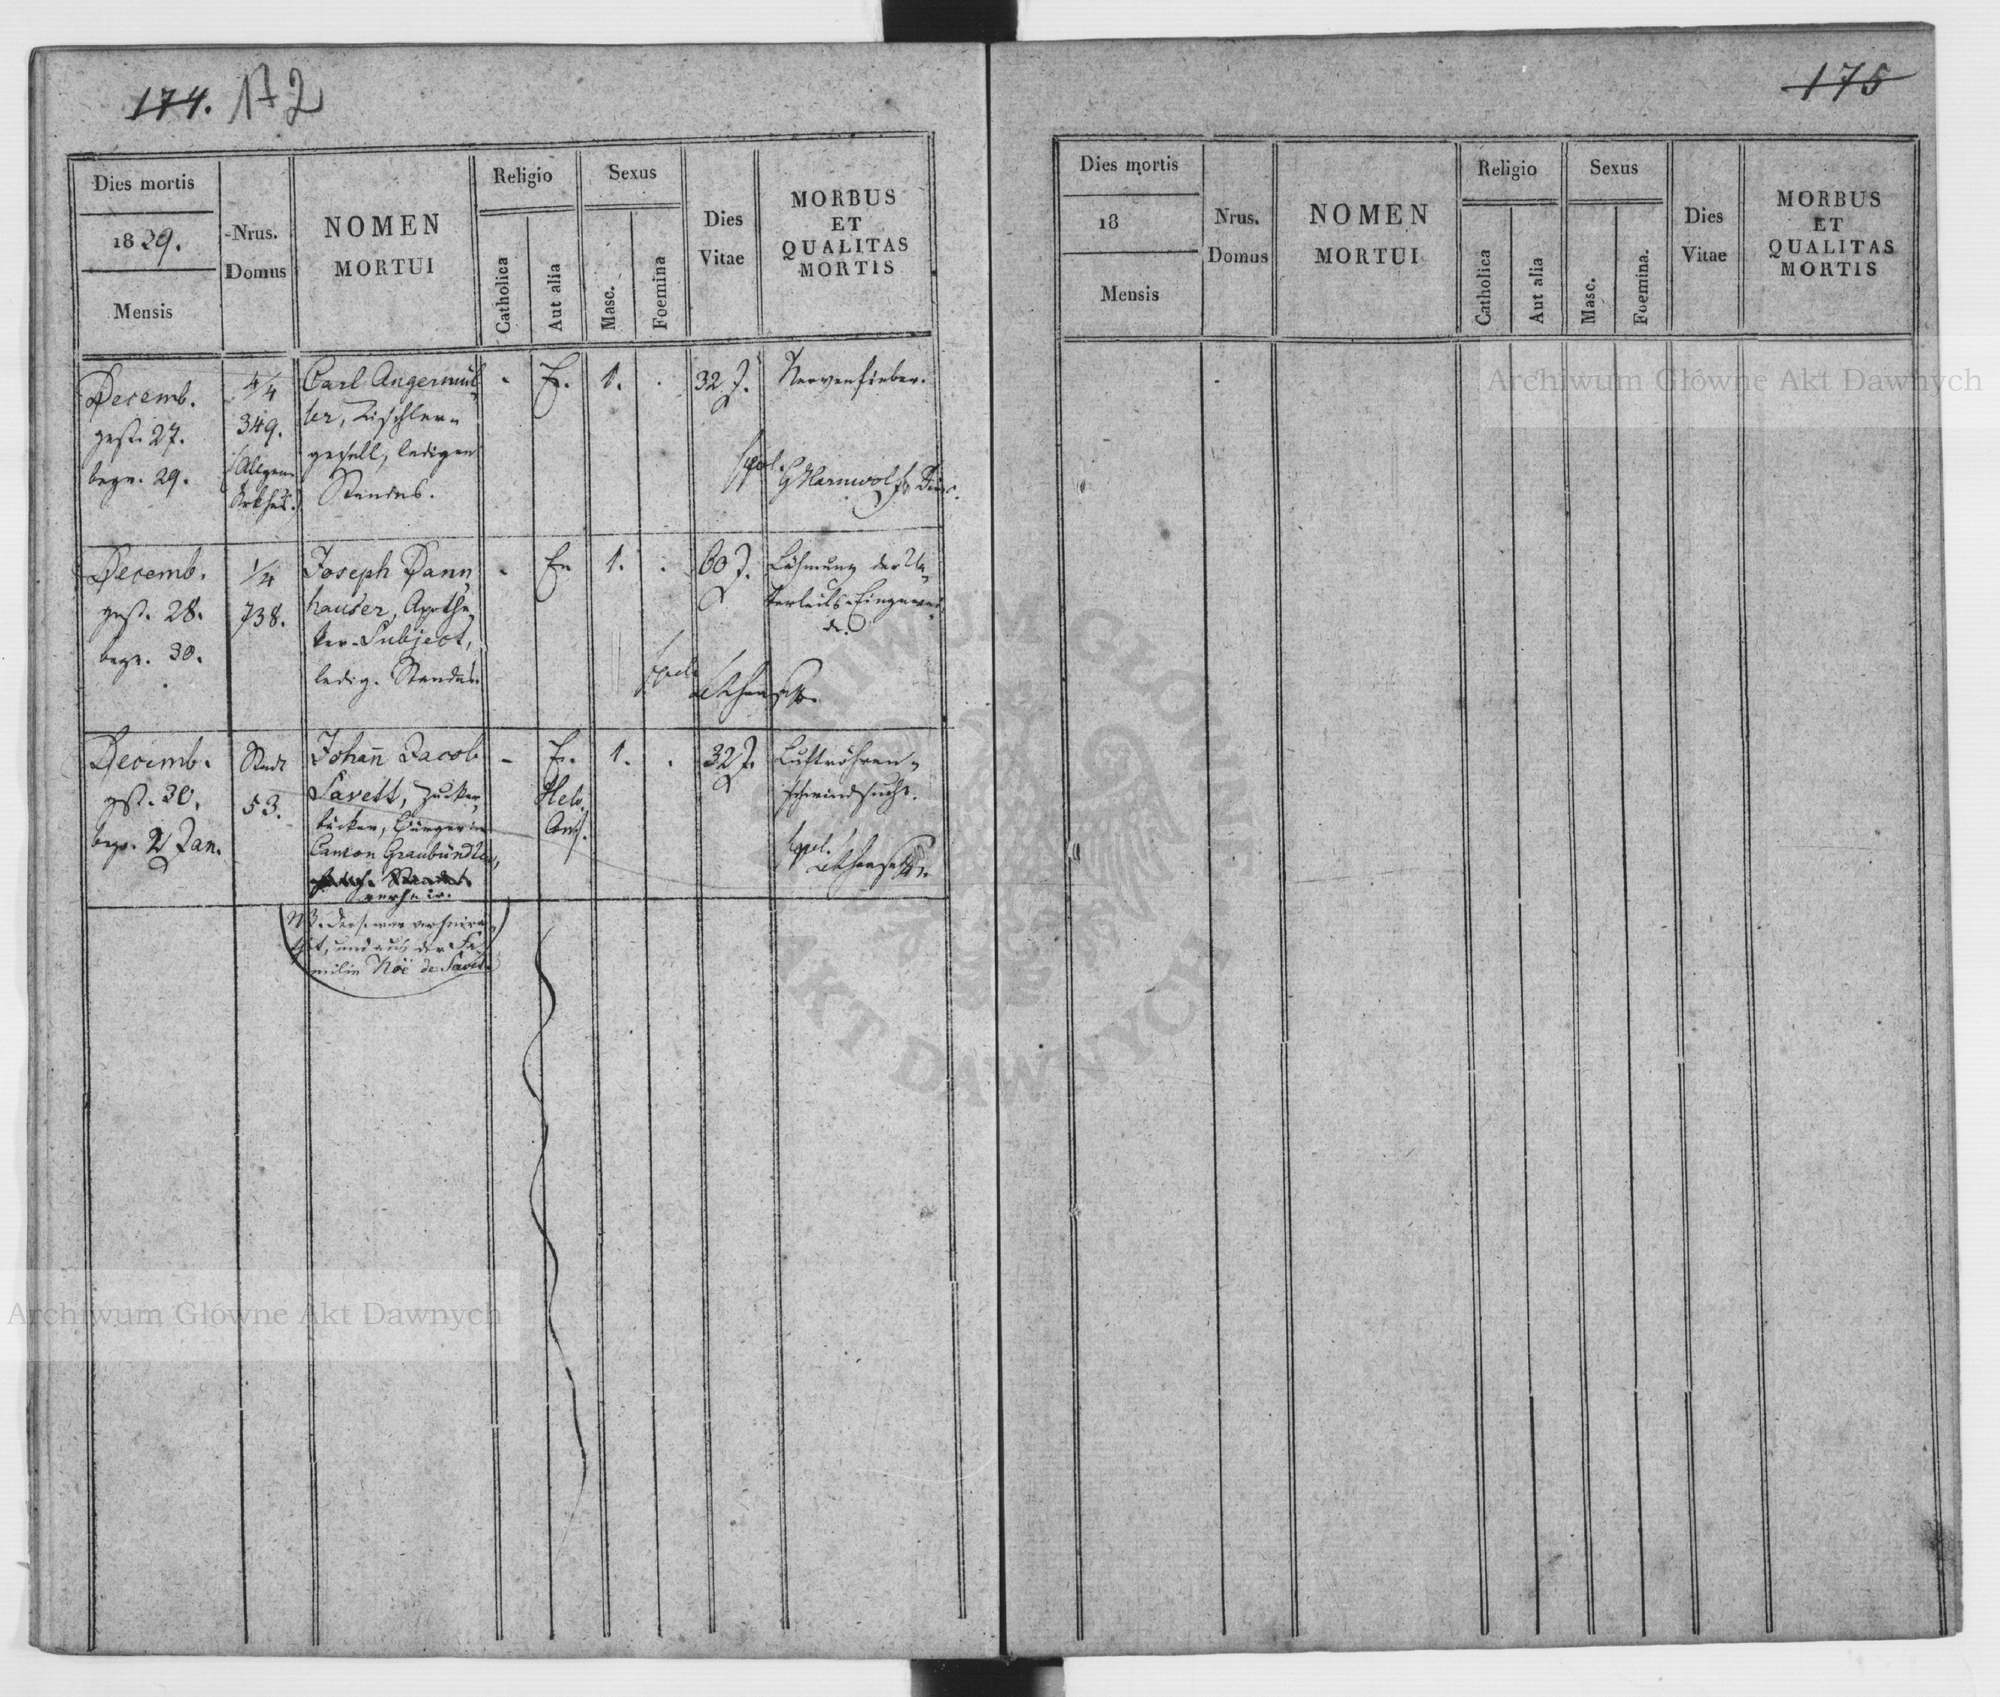 174. 172
Dies mortis
1829.
Mensis
Nrus.
Domus
NOMEN
MORTUI
Religio
Catholica
Aut alia
Sexus
Masc.
Foemina
Dies
Vitae
MORBUS
ET
QUALITAS
MORTIS
Decemb.
gest. 27.
begr. 29.
4/4
349.
(Allgem.
Carl Angermül
ler, Tischler-
gesell, ledigen
Standes.
-
Ev.
1.
.
32 J.
Nervenfieber.
Decemb.
gest. 28.
begr. 30.
1/4
738.
Joseph Dann
hauser, Apothe
ker-Subject,
ledig. Standes
-
Ev.
1.
.
60 J.
Lähmung der Un
terleibs-Eingewei
de.
Decemb.
gest. 30.
begr. 2 Jan.
Stadt
53.
Johann Jacob
Savett, Zucker
bäcker, Bürger im
Canton Graubündten,
verheir.
-
Ev.
Helv.
Conf.
1.
.
32 J.
Luftröhren-
schwindsucht.
NB. Ders. war verheira
thet, und aus der Fa
milie Noë de Savett
175
Dies mortis
18
Mensis
Nrus.
Domus
NOMEN
MORTUI
Religio
Catholica
Aut alia
Sexus
Masc.
Foemina.
Dies
Vitae
MORBUS
ET
QUALITAS
MORTIS
Archiwum Główne Akt Dawnych
ARCHIWUM GŁÓWNE
AKT DAWNYCH
Archiwum Główne Akt Dawnych